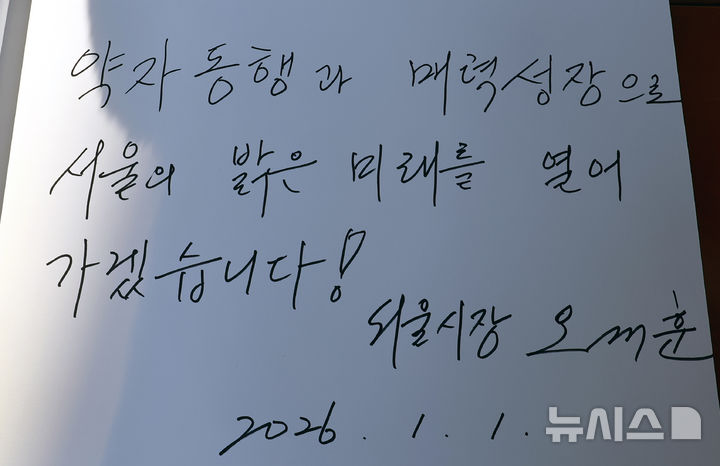 약자동행과 매력성장으로
서울의 밝은 미래를 열어
가겠습니다!
서울시장 오세훈
2026. 1. 1.
뉴시스